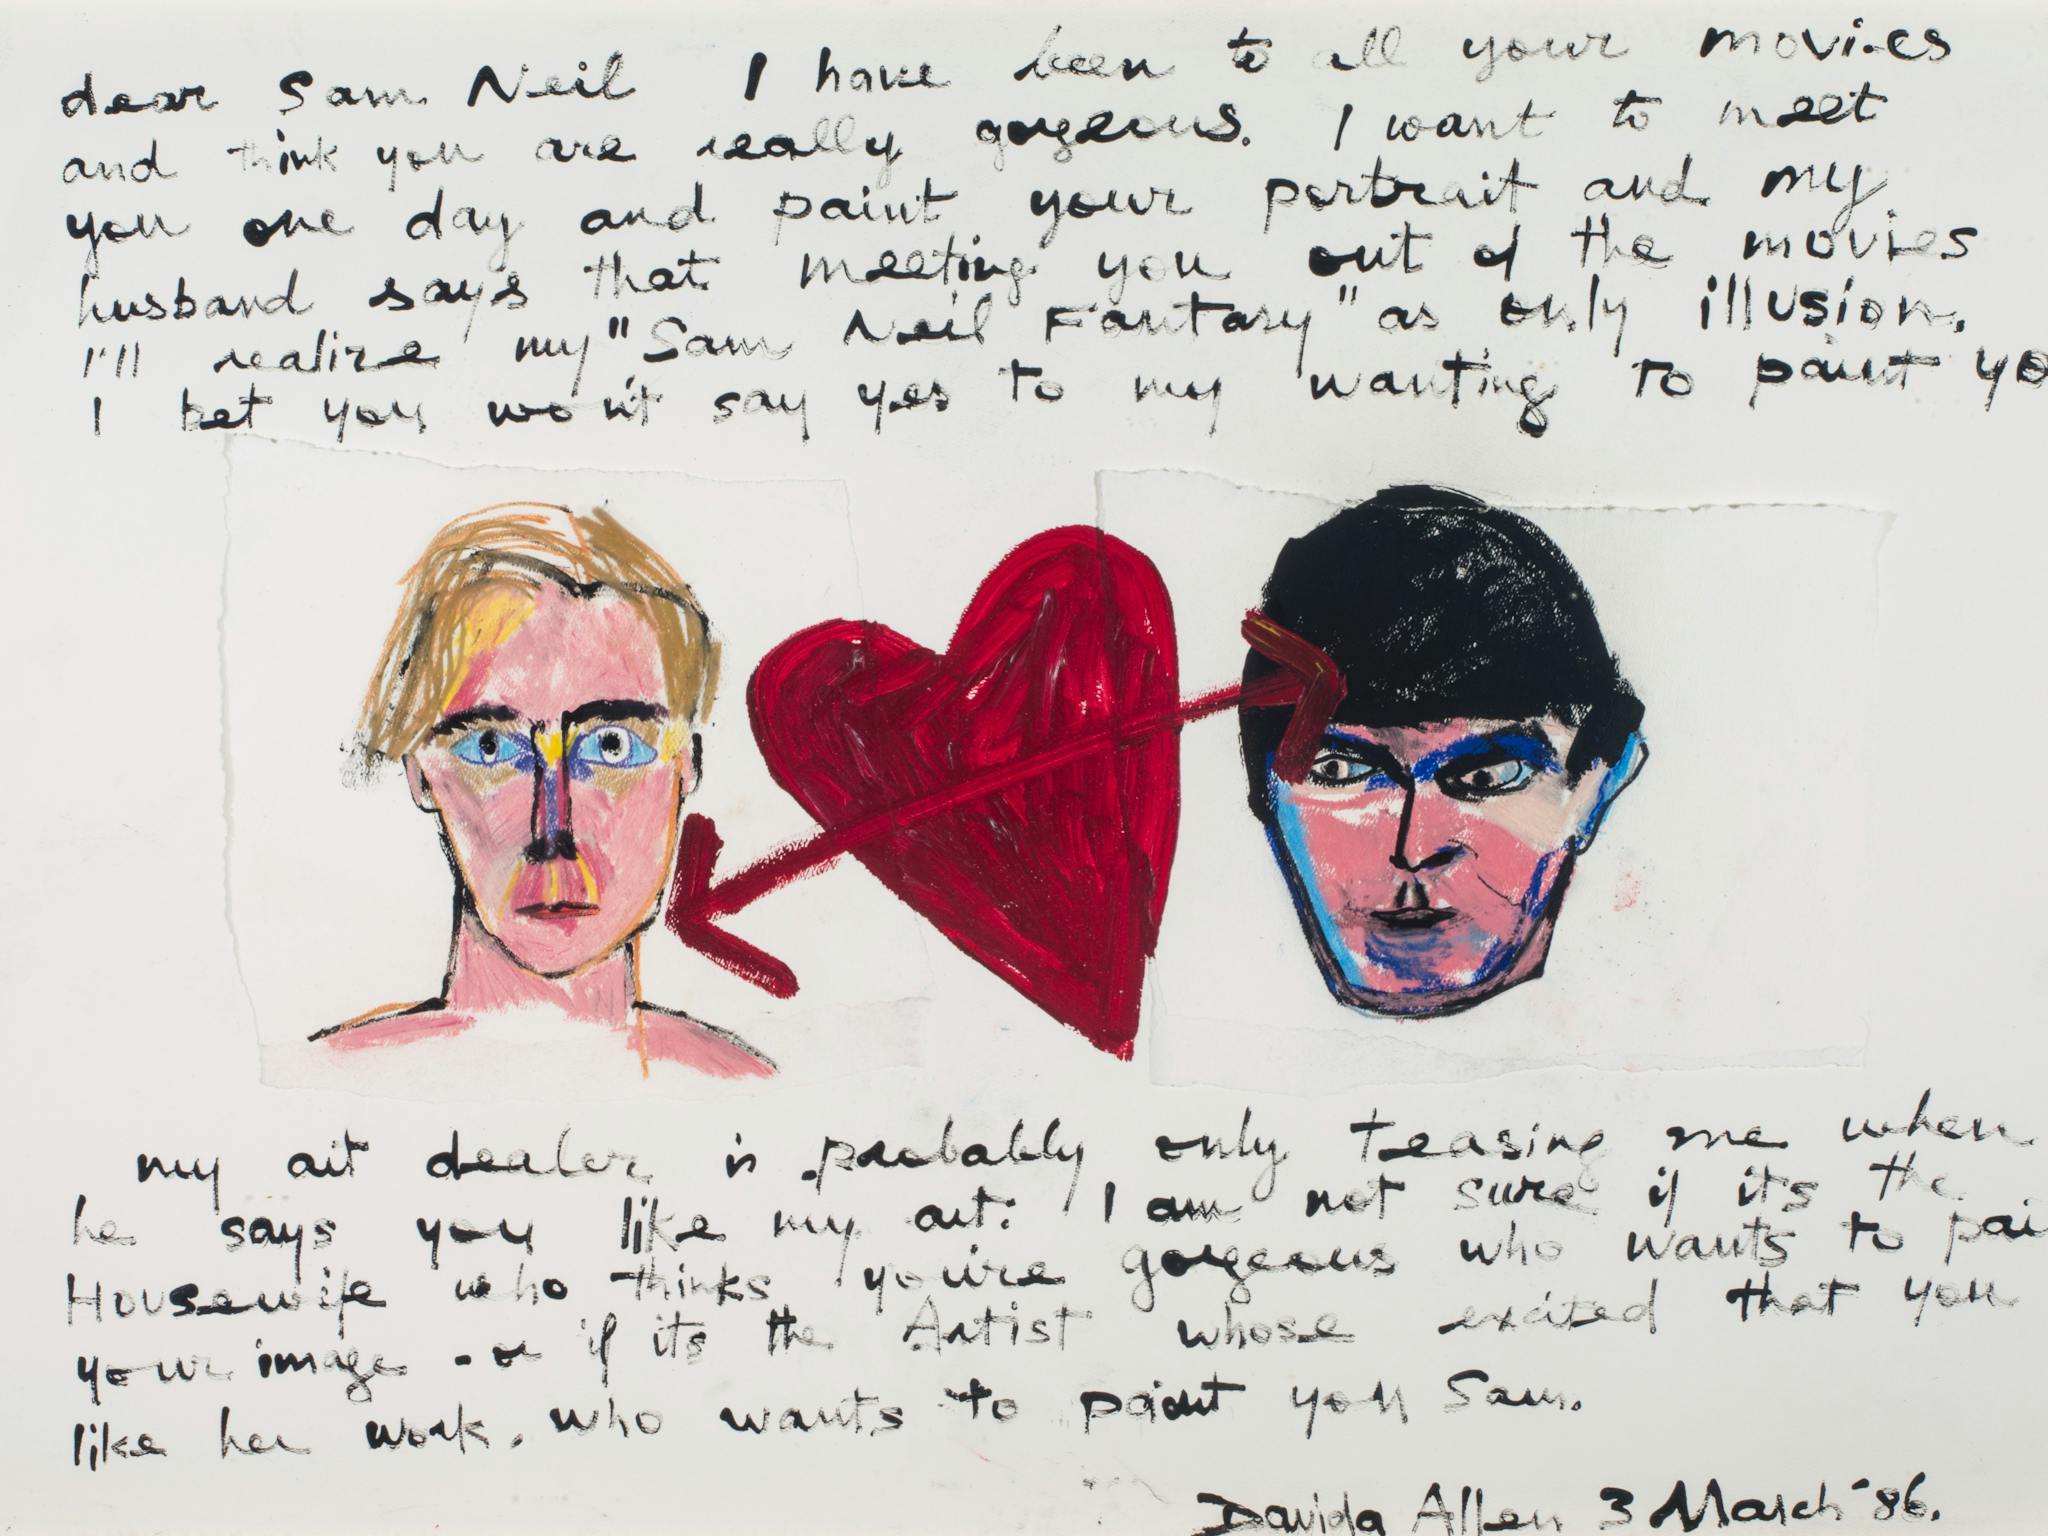 dear Sam Neil I have been to all your movies
and think you are really gorgeous. I want to meet
you one day and paint your portrait and my
husband says that meeting you out of the movies
I'll realize my "Sam Neil Fantasy" as only illusion.
I bet you won't say yes to my wanting to paint yo
my art dealer is probably only teasing me when
he says you like my art: I am not sure if its the
Housewife who thinks you're gorgeous who wants to pai
your image - or if its the Artist whose excited that you
like her work. who wants to paint you Sam.
Davida Allen 3 March '86.